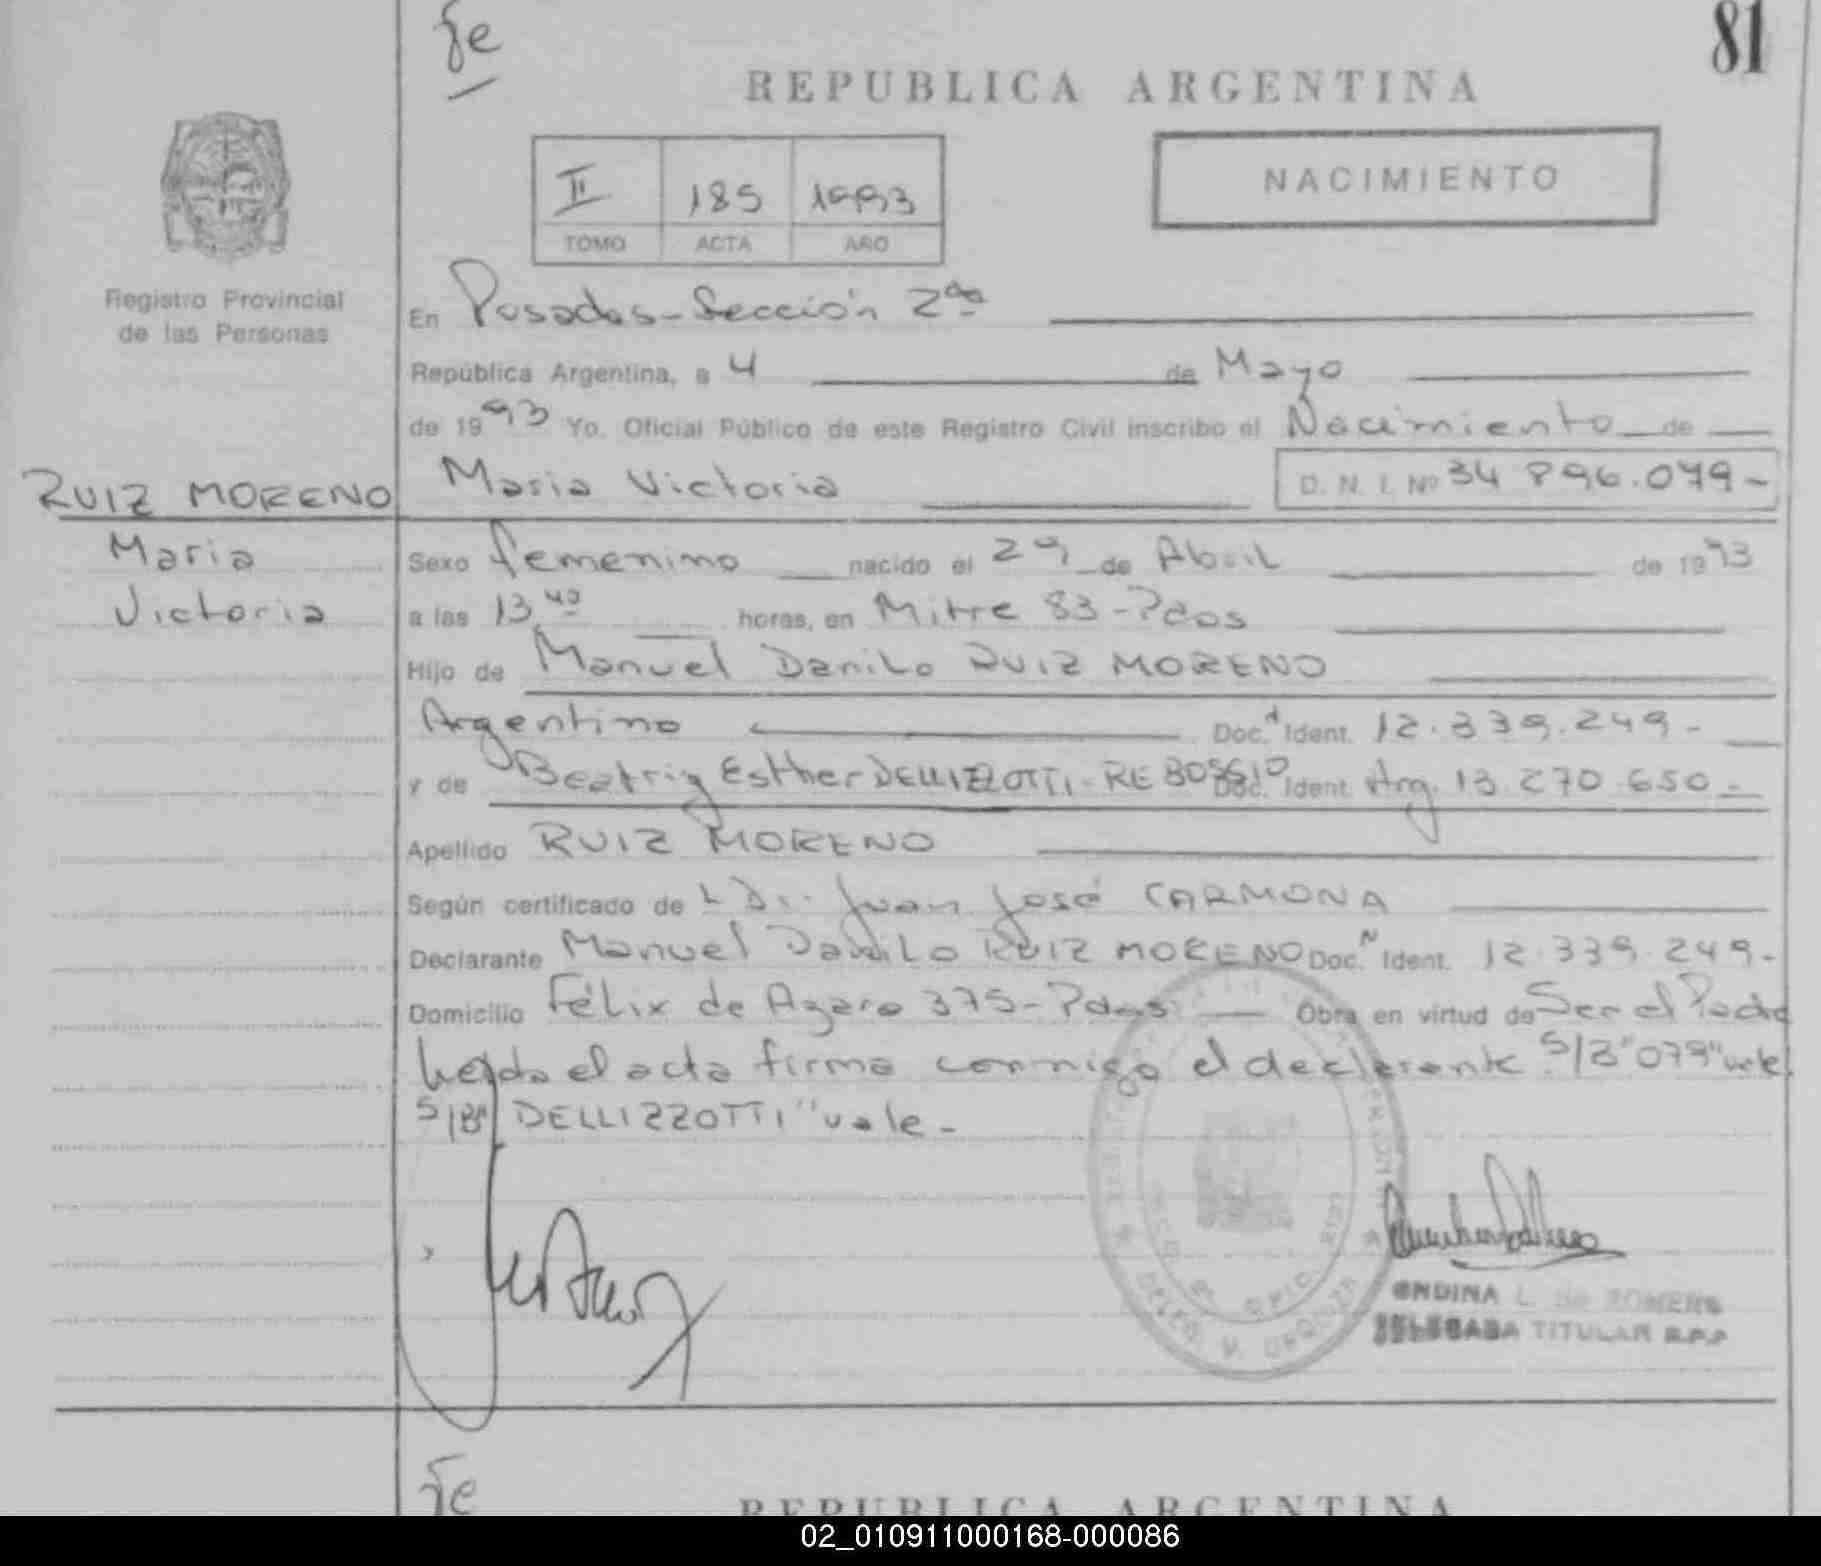 fe
81
REPUBLICA ARGENTINA
II 185 1993
TOMO ACTA AÑO
NACIMIENTO
Registro Provincial
de las Personas
En Posadas-Sección 2da
República Argentina, a 4 de Mayo
de 1993 Yo. Oficial Público de este Registro Civil inscribo el Nacimiento de
RUIZ MORENO Maria Victoria D. N. I. Nº 34 896.079-
Maria Sexo femenino nacido el 29 de Abril de 1993
Victoria a las 13,40 horas, en Mitre 83-Pdas
Hijo de Manuel Danilo RUIZ MORENO
Argentino Doc. Ident. 12.339.249-
y de Beatriz Esther DELLIZZOTTI-REBOSSIO Doc. Ident. Arg. 13.270.650-
Apellido RUIZ MORENO
Según certificado de L Dr. Juan José CARMONA
Declarante Manuel Danilo RUIZ MORENO Doc. Ident. 12.339.249-
Domicilio Félix de Azara 375-Pdas Obra en virtud de Ser el Padre
Leída el acta firma conmigo el declarante S/B"079"vale
S/B" DELLIZZOTTI"vale-
ONDINA L. de ROMERO
DELEGADA TITULAR R.P.P
fe
REPUBLICA ARGENTINA
02_010911000168-000086